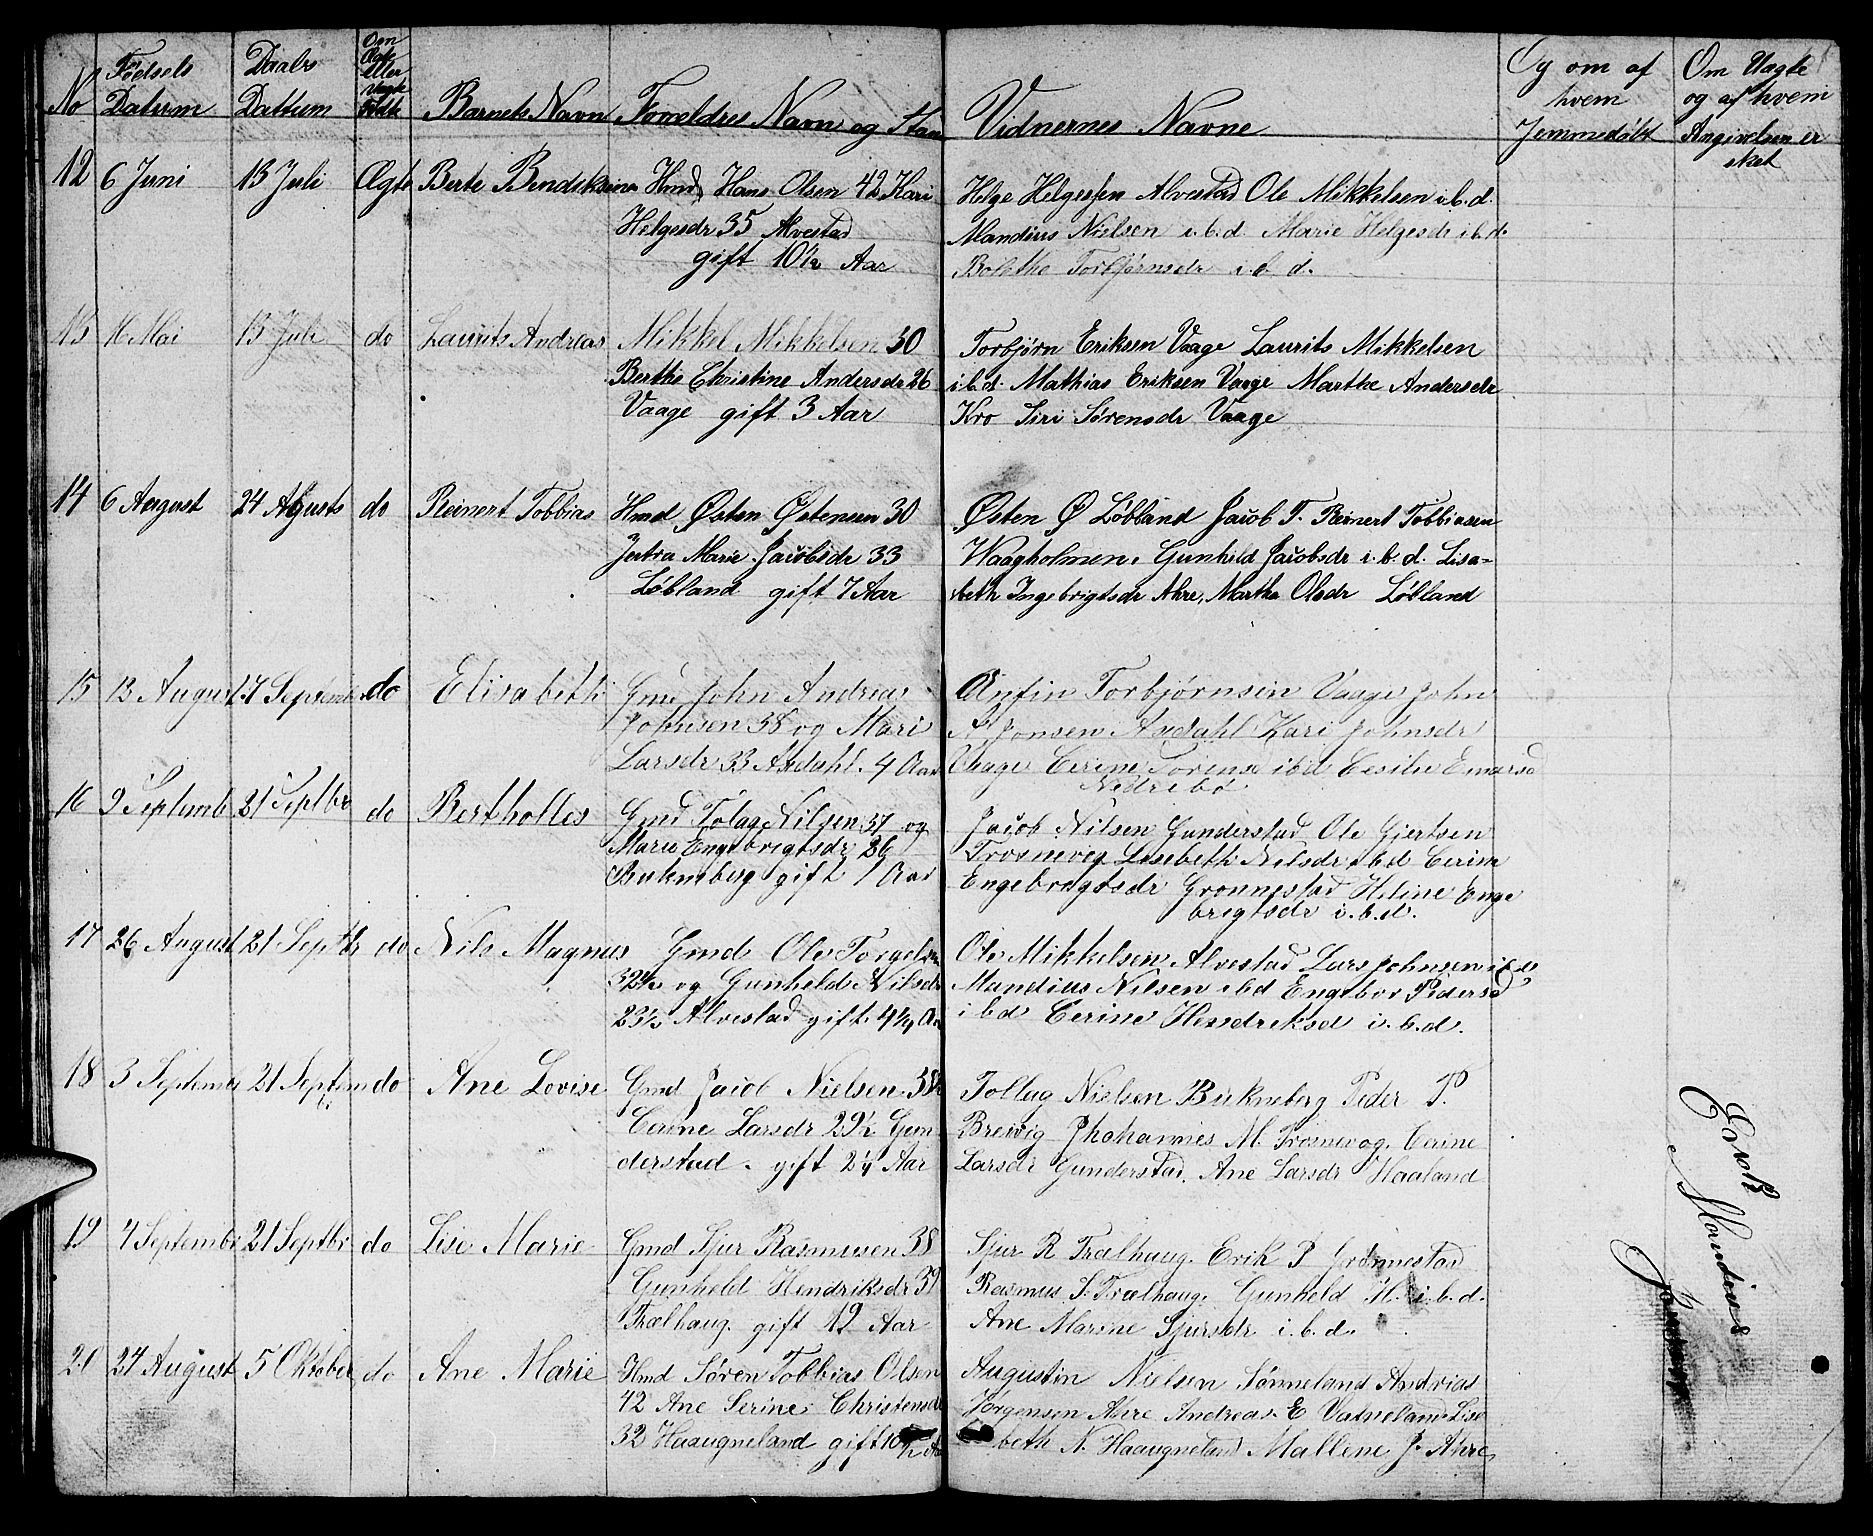 No Födsels Datum Daabs Dattum Om Ægte eller Uægte födte Barnets Navn Foreldres Navn og Stand Vidnernes Navne Og om af hvem Jemmedøbt Om Uagte og af hvem Angivelsen er sket
12 6 Juni 13 Juli Ægte Berte Bendiksine Hmd Hans Olsen 42 Kari
Helgesdr 35 Alvestad
gift 10½ Aar
Helge Helgesen Alvestad Ole Mikkelsen i.b.d.
Mandius Nielsen i.b.d. Marie Helgesdr i.b.d.
Bolethe Torbjørnsdr i.b.d.
13 16 Mai 13 Juli do Laurits Andreas Mikkel Mikkelsen 30
Berthe Christine Andersdr 26
Vaage gift 3 Aar
Torbjørn Eriksen Vaage Laurits Mikkelsen
i.b.d. Mathias Eriksen Vaage Marthe Andersdr
Kro Siri Sørensdr Vaage
14 6 August 24 Agusts do Reinert Tobbias Hmd Østen Østensen 30
Marie Jacobsdr 33
Løbland gift 7 Aar
Østen Ø Løbland Jacob T. Reinert Tobbiasen
Waagholmen. Gunheld Jacobsdr i.b.d. Lisa-
beth Ingebrigtsdr Ahre, Marthe Olsdr Løbland
15 13 August 7 September do Elisabeth Gmd John Andreas
Johnsen 38 og Mari
Larsdr 33 Asdahl. 4 Aar
Anfin Torbjørnsen Vaage John
A Jonsen Asdahl Kari Johnsdr
Vaage Cerine i.b.d Cesilie
Nedrebø
16 9 Septemb 21 Septbr do Bertholles Gmd Tolag Nilsen 37 og
Marie Engebregtsdr 26
Birkneberg gift 1 Aar
Jacob Nilsen Gunderstad Ole Gjertsen
Trosnevig Lisebeth Nilsdr i.b.d Cerine
Engebregtsdr Grønnestad Heline Enge
bregtsdr i.b.d.
17 26 August 21 Septbr do Nils Magnus Gmd Ole Torgelsen
32½ og Gunheld Nilsdr
23½ Alvestad gift 4¼ Aar
Ole Mikkelsen Alvestad Lars Johnsen i.b.d.
Mandius Nilsen i.b.d Engebor Pedersd
i.b.d Cerine Hendriksd i.b.d.
18 3 Septembr 21 Septembr do Ane Lovise Gmd Jacob Nielsen 38½
Cerine Larsdr 29½ Gun-
derstad. gift 2¼ Aar
Tollag Nielsen Birkneberg Peder P.
Brevig Johannes M. Trosnevog. Cerine
Larsdr Gunderstad. Ane Larsdr Haaland
19 4 Septembr 21 Septbr do Lise Marie Gmd Sjur Rasmusen 38
Gunheld Hendriksdr 39
Trælhaug. gift 12 Aar
Sjur R Trælhaug. Erik P Grønnestad
Rasmus S. Trælhaug. Gunheld H. i.b.d.
Ane Marine Sjursdr i.b.d.
20 24 August 5 Oktober do Ane Marie Hmd Søren Tobbias Olsen
42 Ane Serine Christensdr
32 Haaugneland gift 10½ Aar
Augustin Nielsen Sønneland Andrias
Jørgensen Ahre Andreas E Vatneland Lise
beth N. Haaugneland Mallene J. Ahre
Erik
Mandius